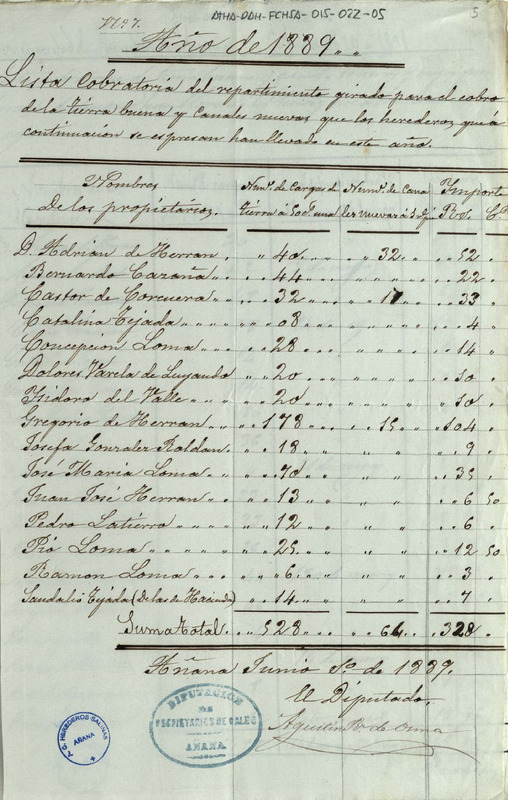 ATHA-DAH-FCHSA-015-022-05
5
Año de 1889..
Lista Cobratoria del repartimiento girado para el cobro
de la tierra buena y canales nuevas que los herederos que á
continuacion se espresan han llevado en este año.
Nombres Num.º de cargas d Num.º de Cana Importe
De los propietarios. tierra á 50 c.s una les nuevas á 1 Pts. C.s
D. Adrian de Herran. " 40 .. " 32 " .. 52 "
Bernardo Cazaña " .. 44 .. " " " " .. 22 "
Castor de Corcuera " .. 32 " .. 17 " .. 33 "
Catalina Tejada " .. 08 " " " " .. 4 "
Concepcion Loma " .. 28 " " " .. 14 "
Dolores Varela de Luyando .. 20 " " " .. 10 "
Isidora del Valle " .. 20 " " " .. 10 "
Gregorio de Herran " .. 178 .. " .. 15 " .. 104 "
Josefa Gonzalez Roldan. " .. 18 " " " .. 9 "
José Maria Loma " .. 70 .. " " .. 35 "
Juan José Herran " .. 13 " " " .. 6 50
Pedro Latierro " .. 12 " " " .. 6 "
Pió Loma " " .. 25 " " " .. 12 50
Ramon Loma " " .. 6 " " " .. 3 "
Sandalio Tejada (De las de Hacienda) .. 14 " " " .. 7 "
Suma total. .. 528 .. " 64 .. 328 "
Añana Junio 1.º de 1889.
El Diputado,
DIPUTACION
DE
PROPIETARIOS DE SALES
AÑANA
T. G. HEREDEROS SALINAS
AÑANA